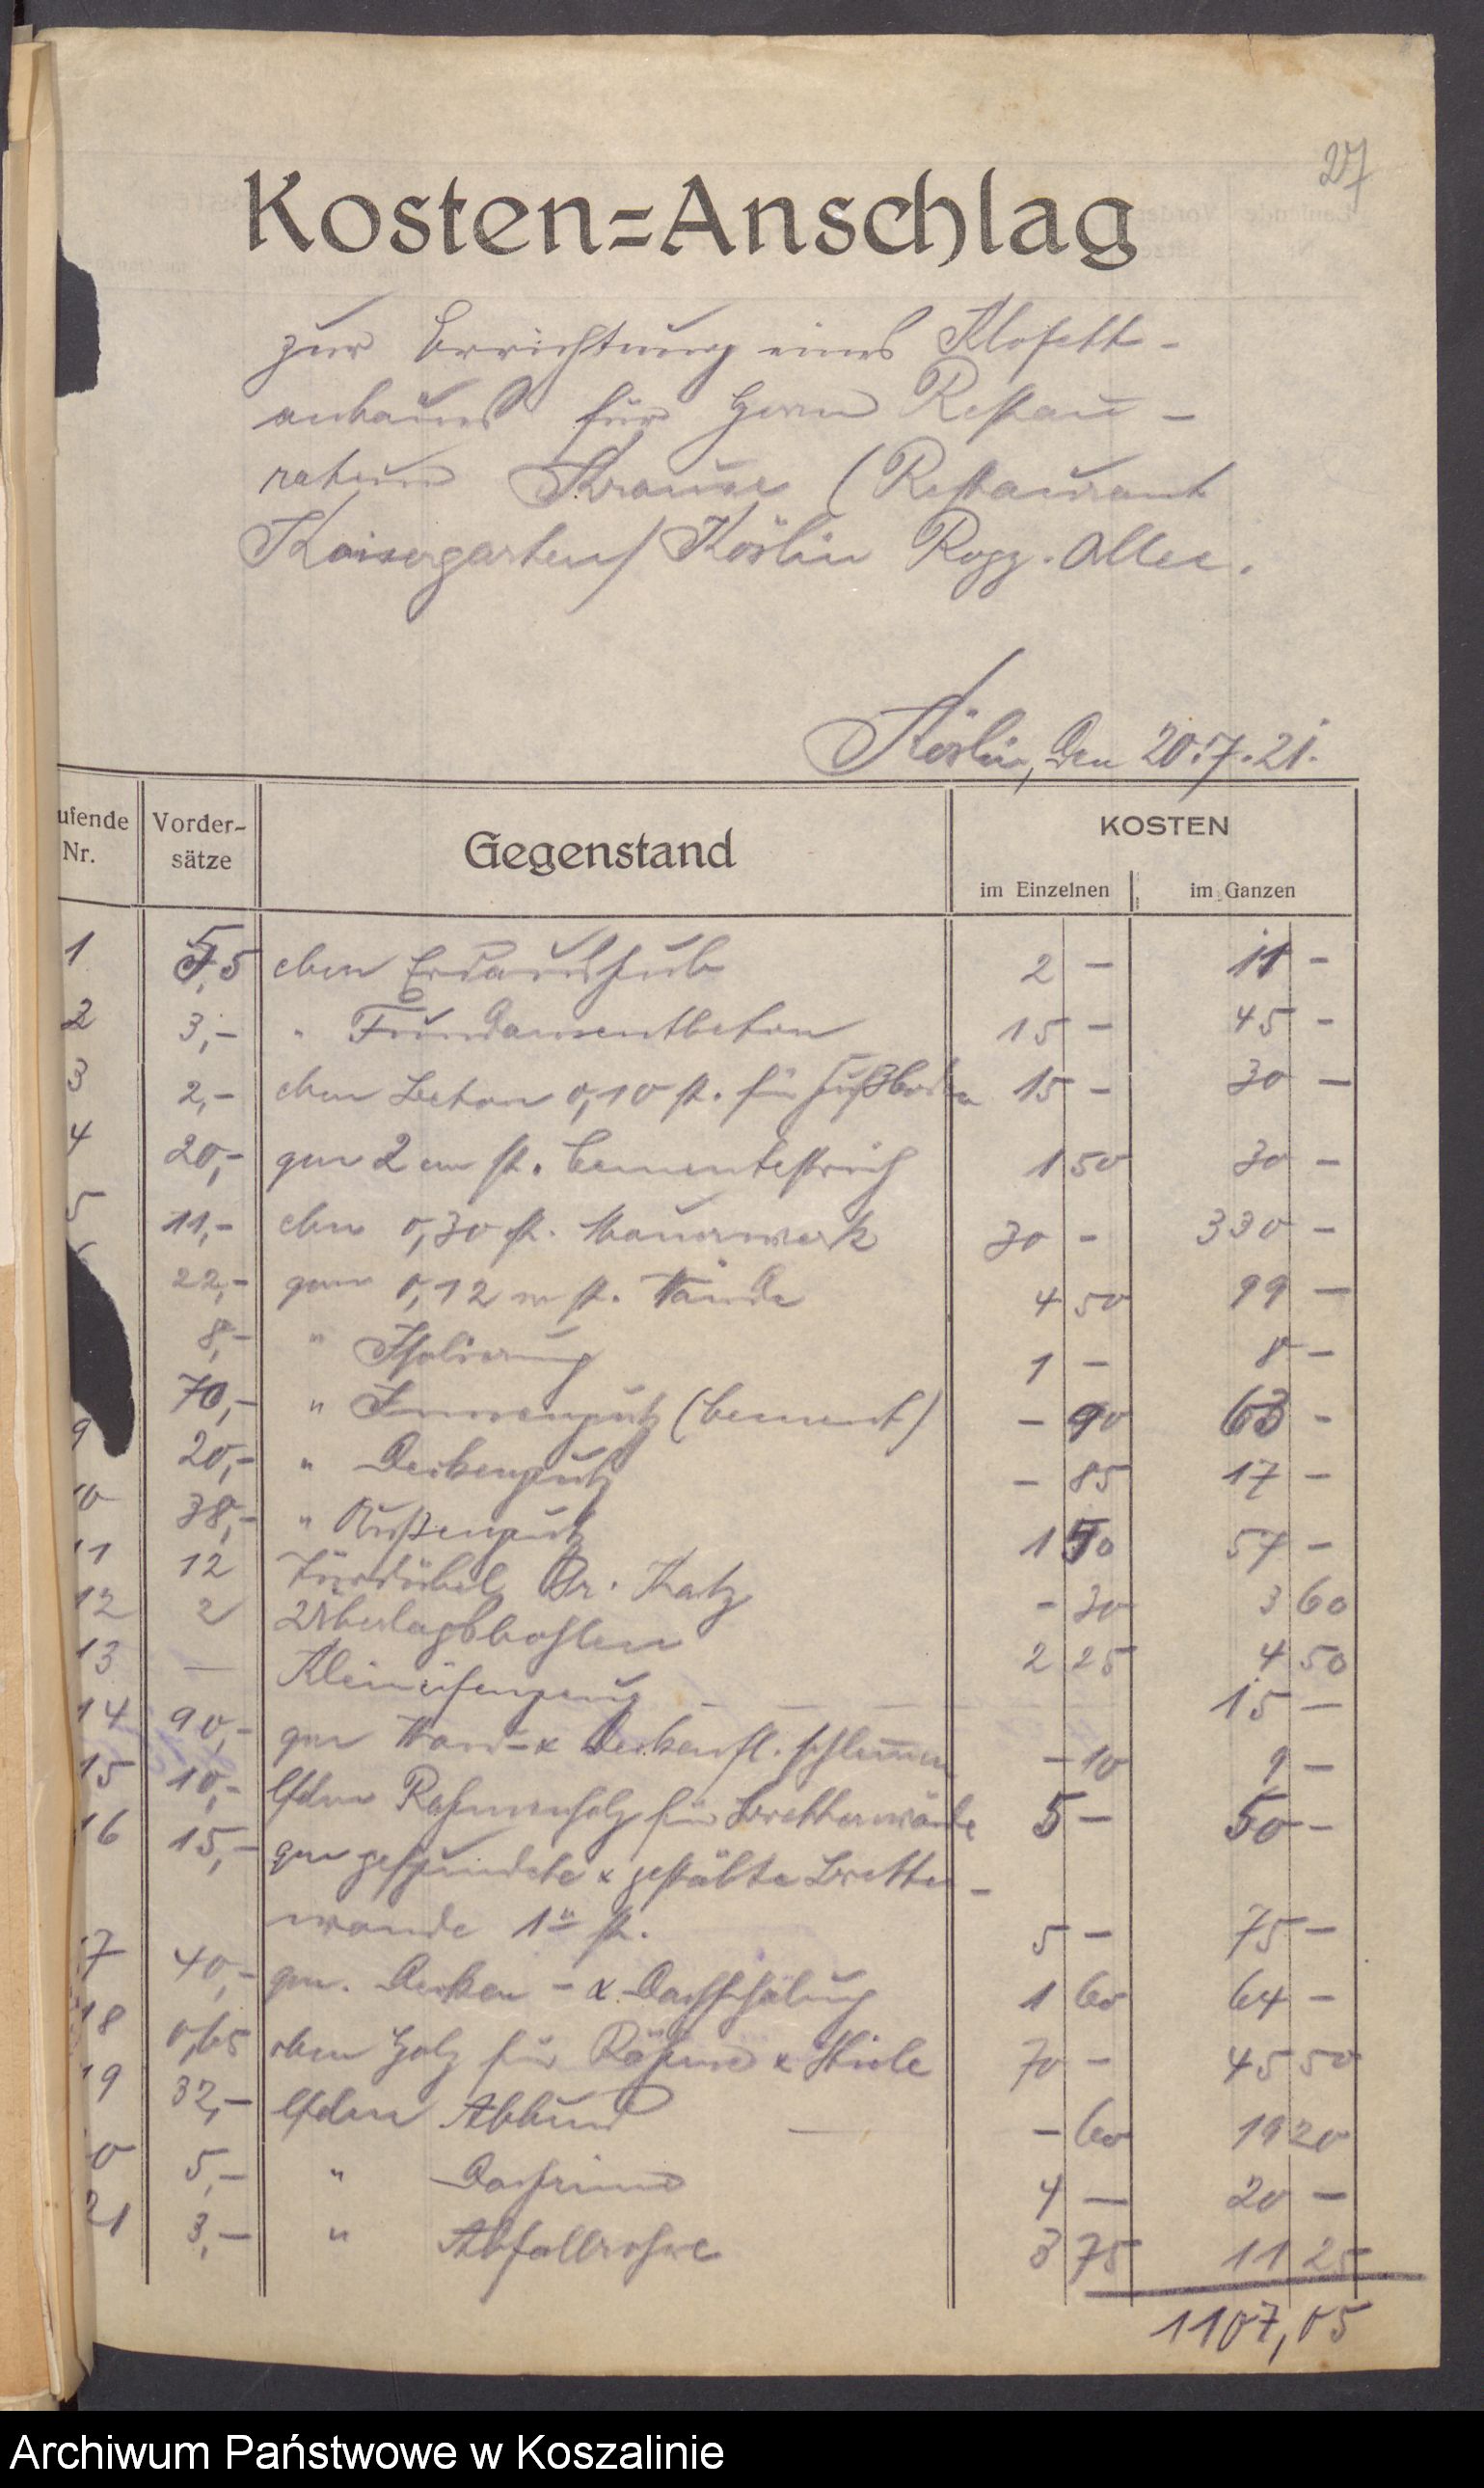 27
Kosten=Anschlag
zur Errichtung eines Klosett-
anbaues für Herrn Restau-
rateur Krause (Restaurant
Kaisergarten) Köslin Rogg. Allee.
Köslin, den 20.7.21.
ufende Nr. Vorder-sätze Gegenstand KOSTEN
im Einzelnen im Ganzen
1 5,5 cbm Erdaushub 2 – 11 –
2 3,– " Fundamentbeton 15 – 45 –
3 2,– cbm Beton 0,10 st. für Fußboden 15 – 30 –
4 20,– qm 2 cm st. Cementestrich 1 50 30 –
5 11,– cbm 0,30 st. Mauerwerk 30 – 330 –
22,– qm 0,12 m st. Wände 4 50 99 –
8,– " Isolierung 1 – 8 –
70,– " Innenputz (Cement) – 90 63 –
9 20,– " Deckenputz – 85 17 –
10 38,– " Außenputz 1 50 57 –
11 12 Türdübel – 30 3 60
12 2 Überlagsbohlen 2 25 4 50
13 — Kleineisenzeug – – – 15 –
14 90,– qm Wand- & Deckenfl. schlemmen – 10 9 –
15 10,– lfdm Rahmenholz für Bretterwände 5 – 50 –
16 15,– qm gespundete & gestäbte Bretter-
wände 1" st. 5 – 75 –
17 40,– qm. Decken- & Dachschalung 1 60 64 –
18 0,65 cbm Holz für Rähme & Stiele 70 – 45 50
19 32,– lfdm Abbund – 60 19 20
0 5,– " Dachrinne 4 — 20 –
21 3,– " Abfallrohre 3 75 11 25
1107,05
Archiwum Państwowe w Koszalinie